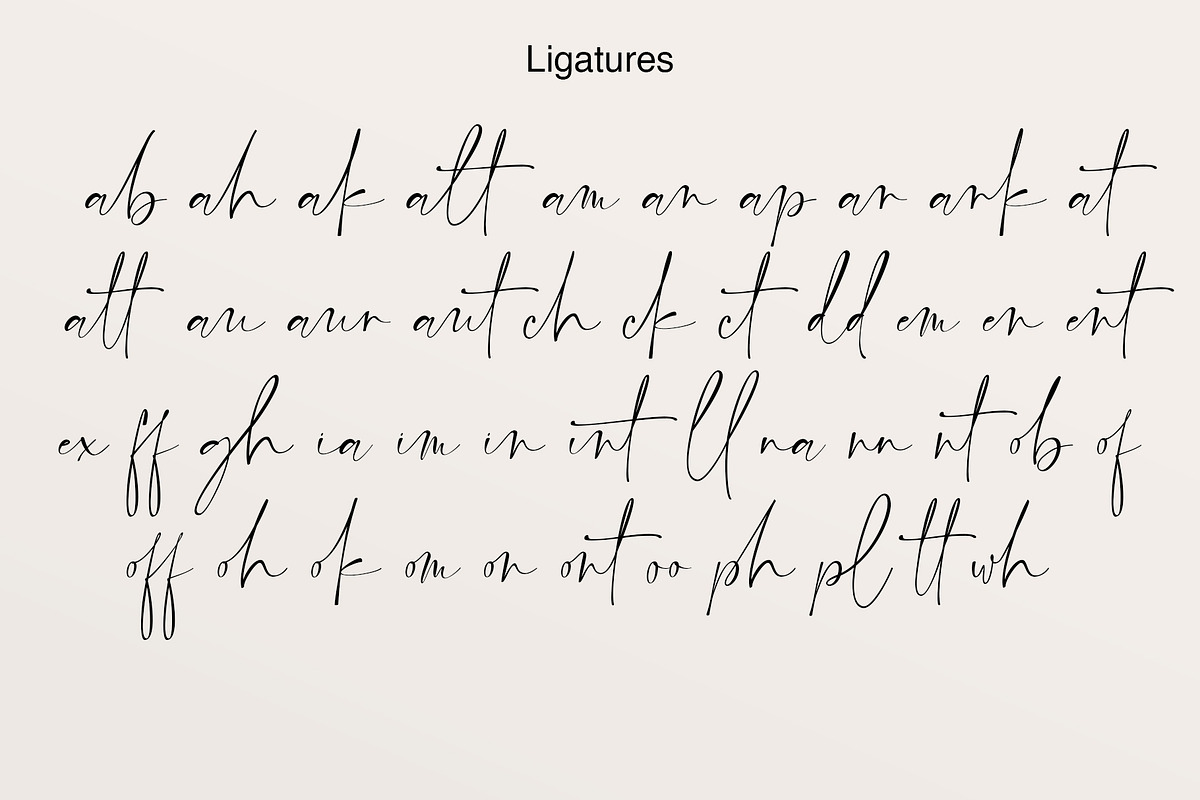 Ligatures
ab ah ak alt am an ap ar ark at
att au aur aut ch ck ct dd em en ent
ex ff gh ia im in int ll na nn nt ob of
off oh ok om on ont oo ph pl tt wh